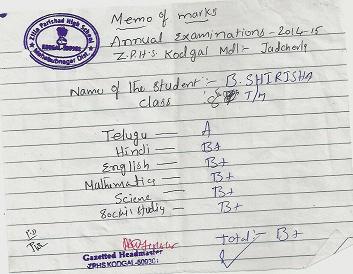 Zilla Parishad High School
KODGAL-509301
Mahabubnagar Dist.
Memo of marks
Annual Examinations - 2014-15
Z.P.H.S. Kodgal Mdl:- Jadcherla
Name of the Student :- B. SHIRISHA
class 8 T/m
Telugu — A
Hindi — B+
English — B+
Mathematics — B+
Science — B+
Social Studies — B+
total:- B+
Gazetted Headmaster
ZPHS KODGAL-50930